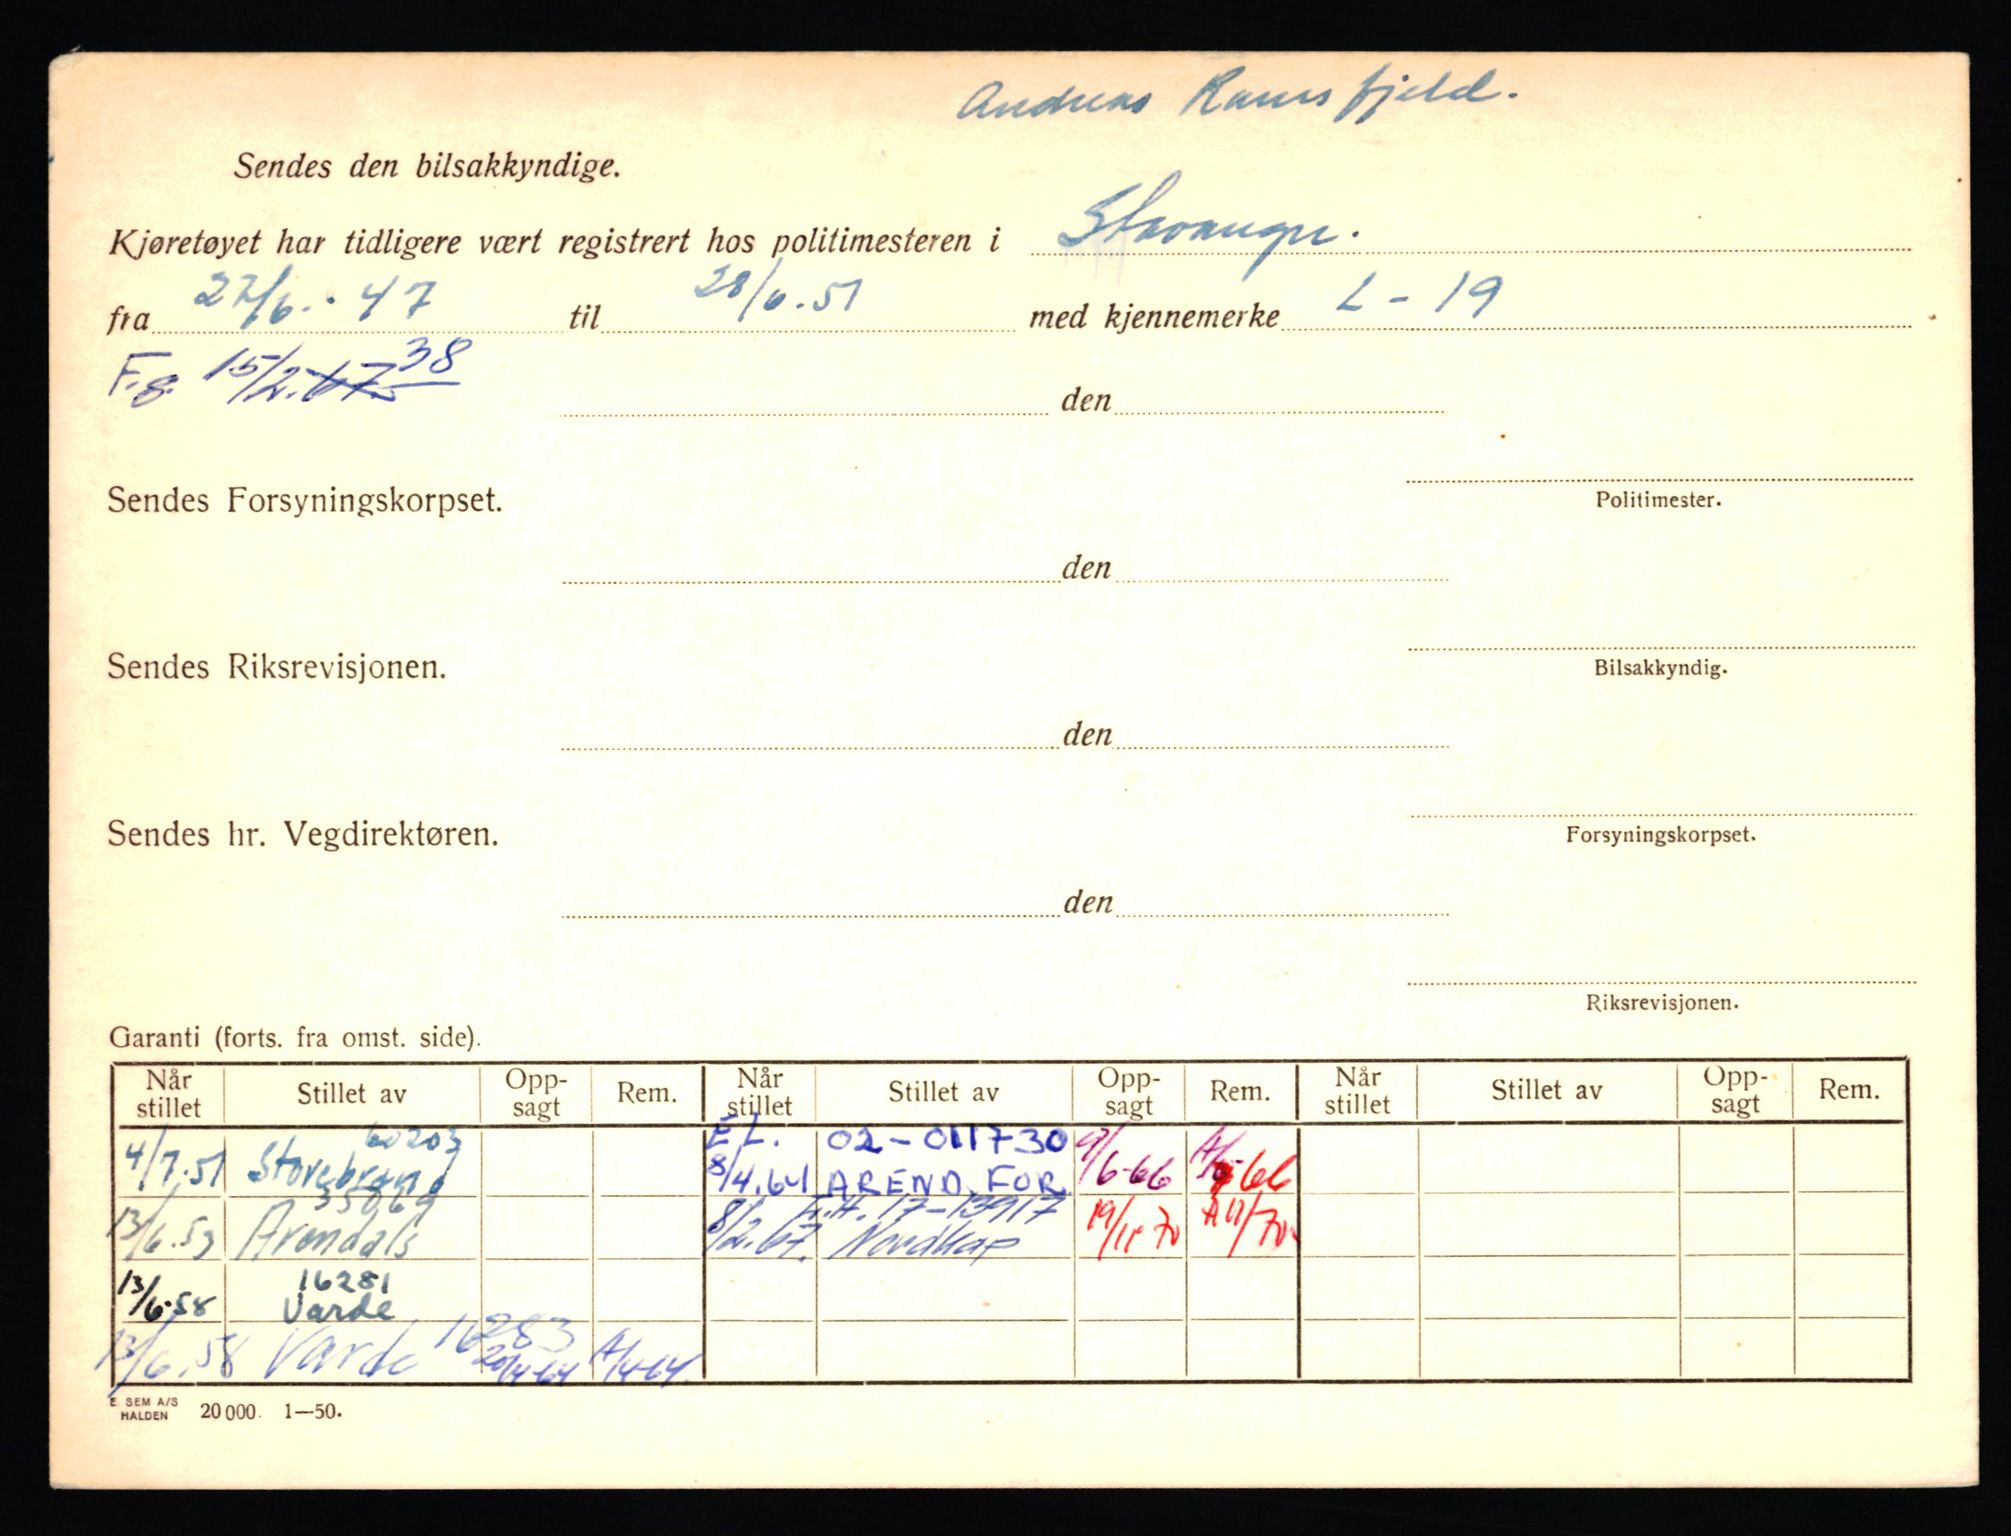 Andreas Ramsfjeld.
Sendes den bilsakkyndige.
Kjøretøyet har tidligere vært registrert hos politimesteren i Stavanger.
fra 27/6.-47 til 28/6.51 med kjennemerke L-19
F.g. 15/2.67. 38
den
Sendes Forsyningskorpset.
Politimester.
den
Sendes Riksrevisjonen.
Bilsakkyndig.
den
Sendes hr. Vegdirektøren.
Forsyningskorpset.
den
Riksrevisjonen.
Garanti (forts. fra omst. side).
Når stillet Stillet av Opp-sagt Rem. Når stillet Stillet av Opp-sagt Rem. Når stillet Stillet av Opp-sagt Rem.
60203 E.L. 02-011730
4/7.51 Storebrand 8/4.64 AREND. FOR. 9/6-66
35869 17-13917
13/6.53 Arendals 8/2.67. Nordkap 19/11 70
16281
13/6-58 Varde
13/6.58 Varde 16283 20/4-64 A/4-64.
E. SEM A/S
HALDEN 20 000. 1—50.